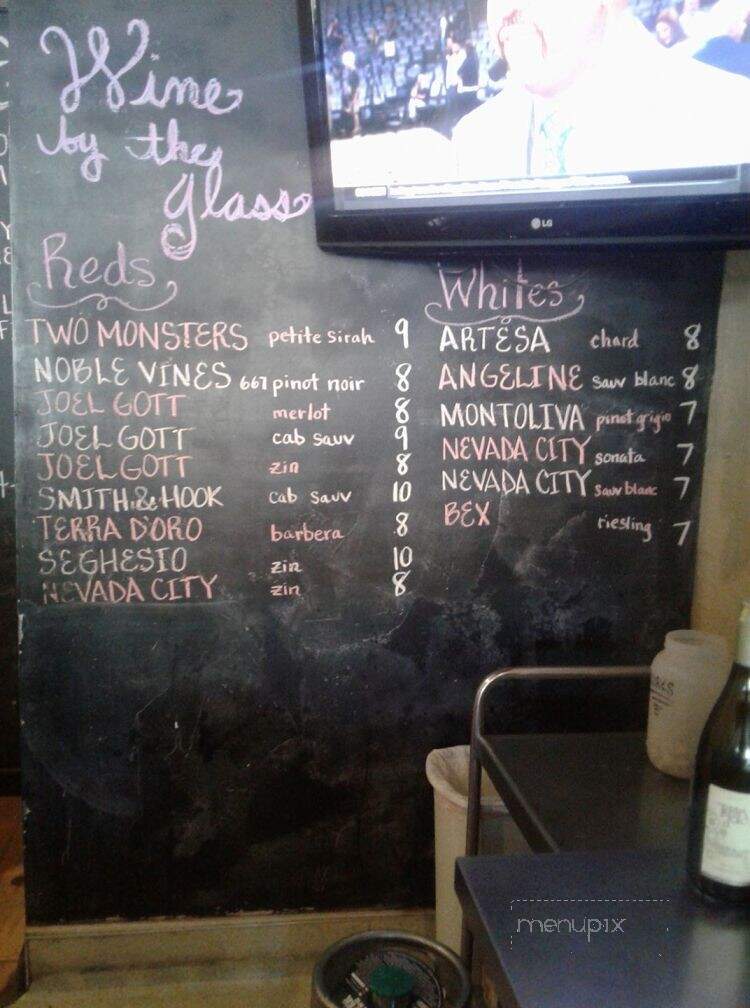 Wine
by the
glass
Reds
TWO MONSTERS petite sirah 9
NOBLE VINES 667 pinot noir 8
JOEL GOTT merlot 8
JOEL GOTT cab sauv 9
JOEL GOTT zin 8
SMITH & HOOK cab sauv 10
TERRA D'ORO barbera 8
SEGHESIO zin 10
NEVADA CITY zin 8
Whites
ARTESA chard 8
ANGELINE sauv blanc 8
MONTOLIVA pinot grigio 7
NEVADA CITY sonata 7
NEVADA CITY sauv blanc 7
BEX riesling 7
LG
menupix